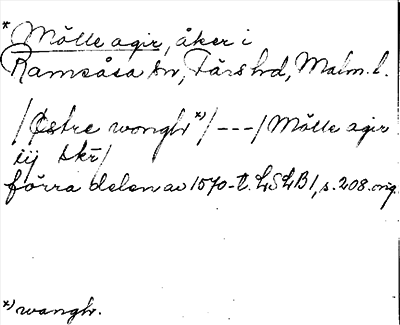 * Mölle agir, åker i
Ramsåsa sn, Färs hd, Malm. l.
/Østre wonghr *)/ --- / Mölle agir
iij skr/
förra delen av 1570-t. LSLB 1, s. 208. orig.
*) wanghr.